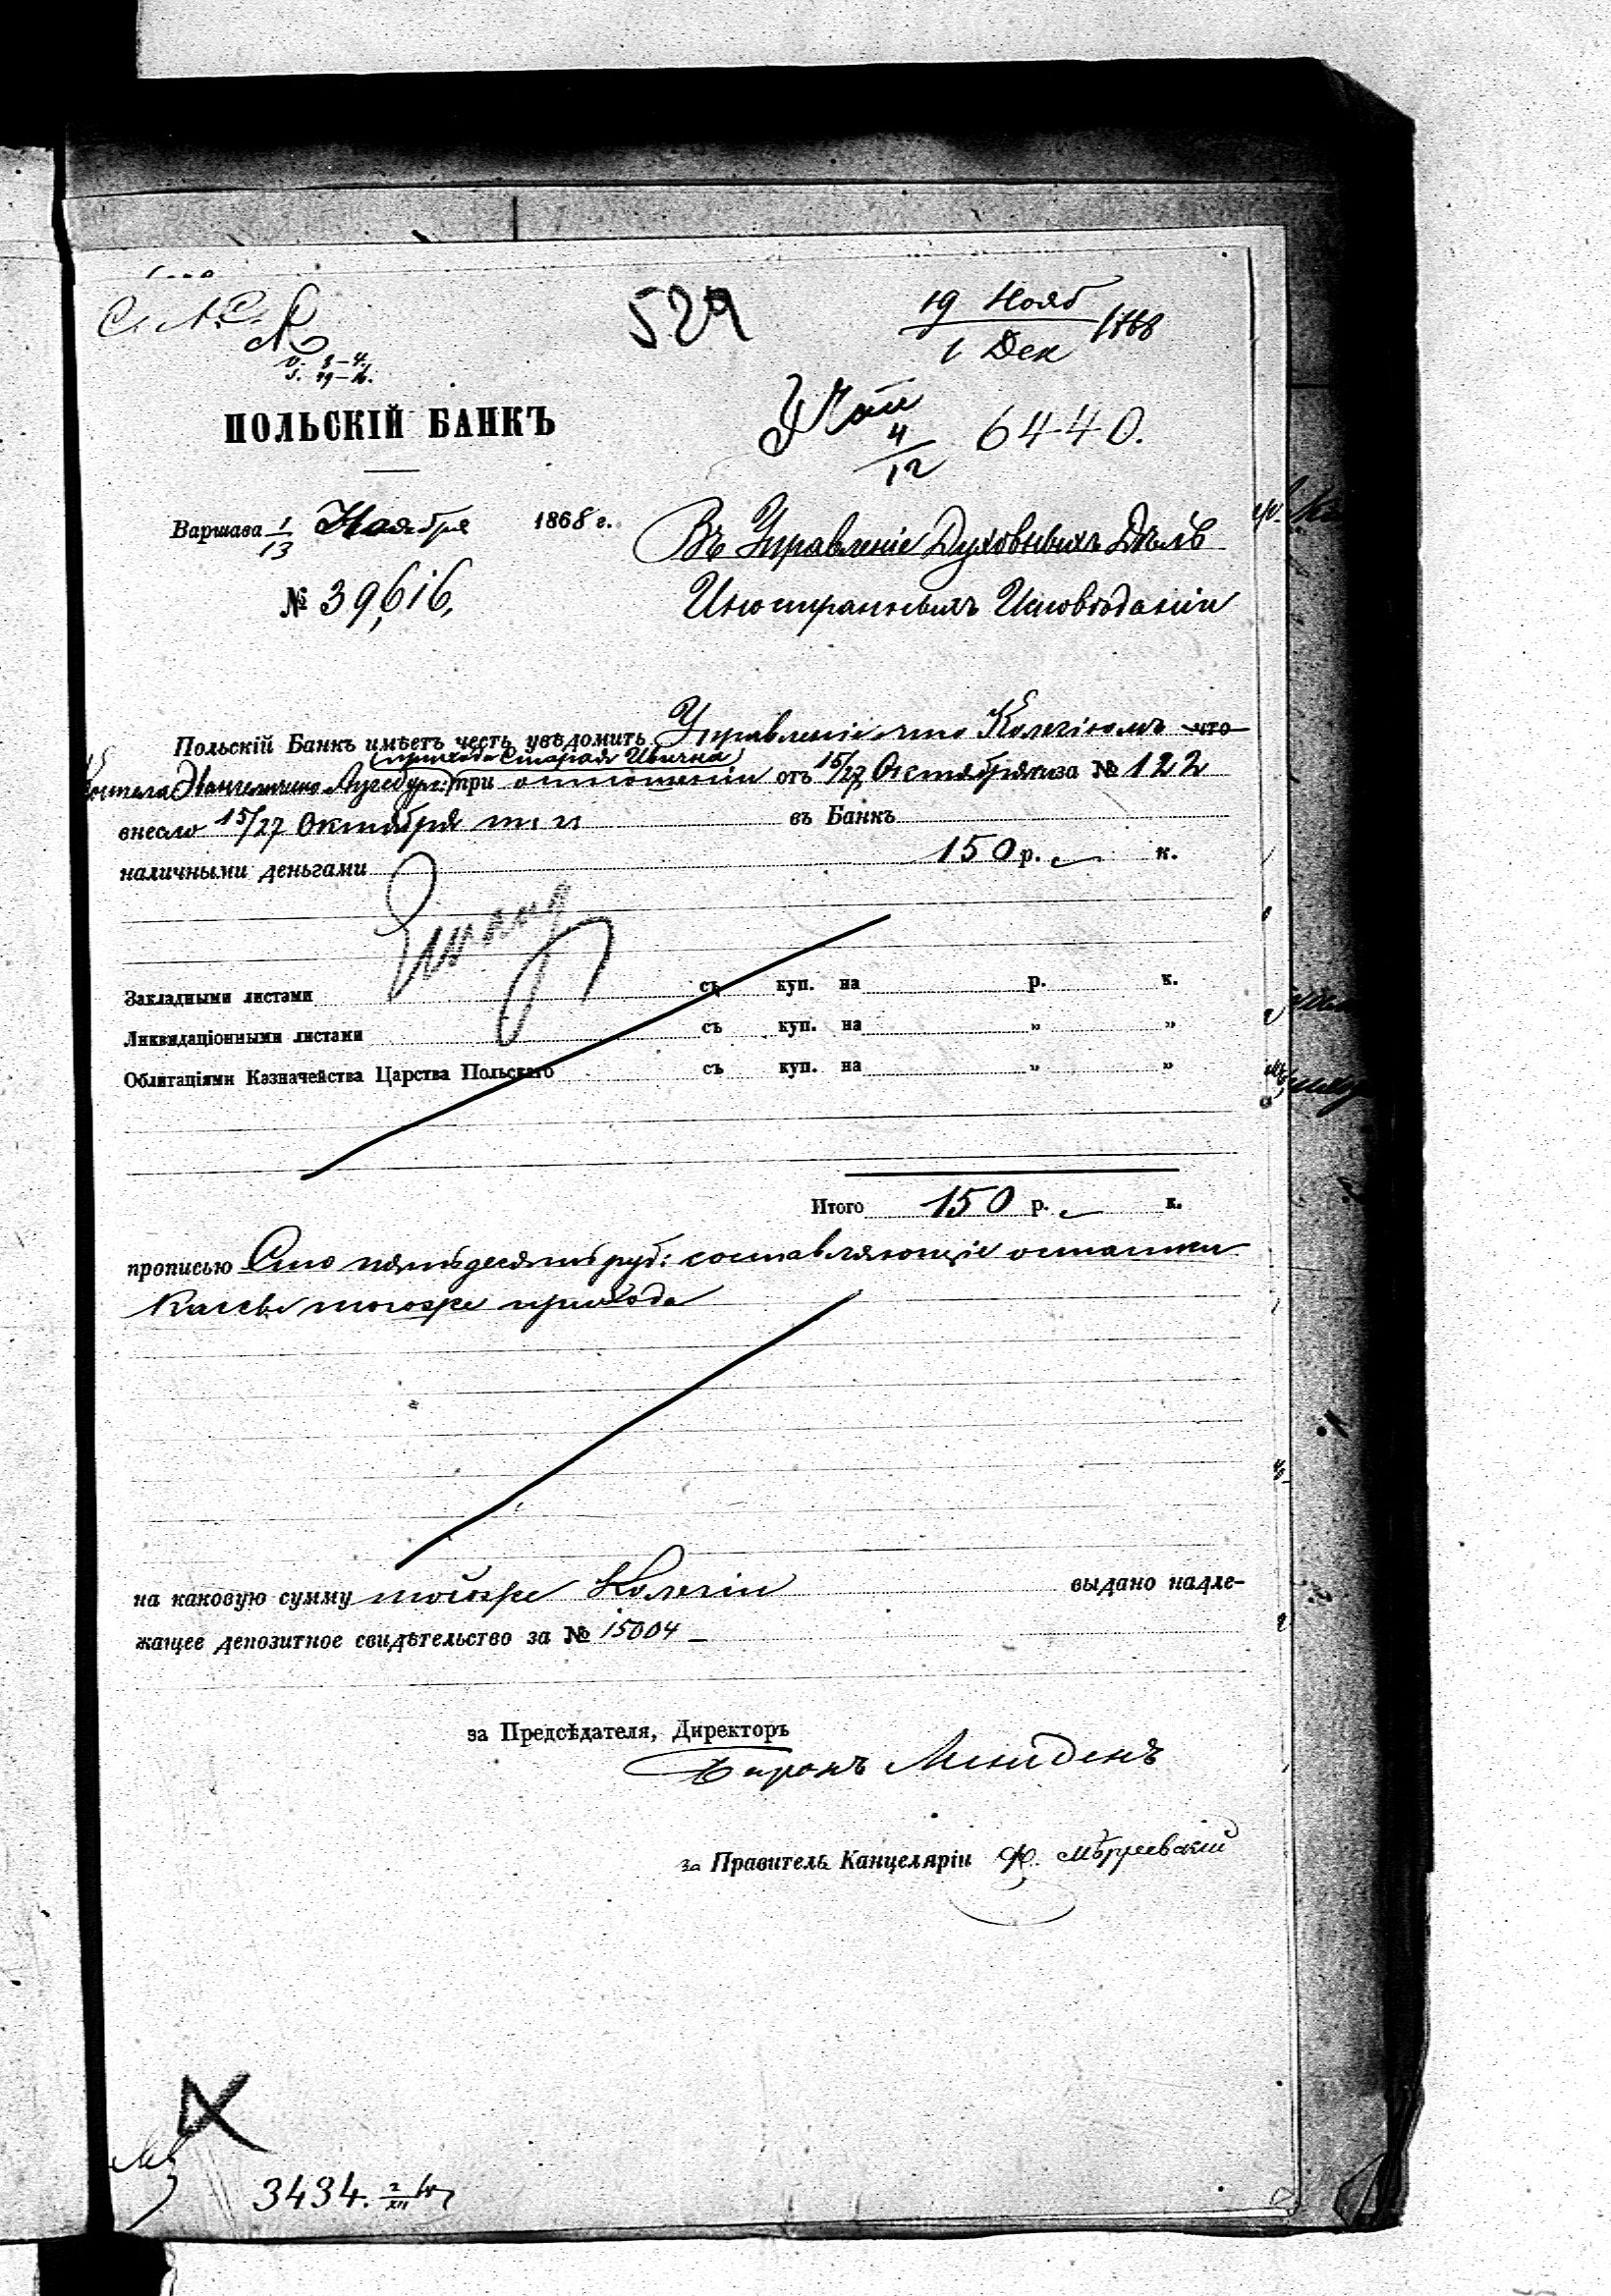 529
19 Нояб 1868
1 Дек
4
12
6440.
ПОЛЬСКІЙ БАНКЪ
Варшава 1/13 Ноября 1868 г.
№ 39,616,
Въ Управленіе Духовныхъ Дѣлъ
Иностранныхъ Исповѣданій
Польскій Банкъ имѣетъ честь увѣдомить Управленіе что Колегіюмъ что
прихода Старая Ивична
Евангелично Аугсбург: при отношеніи отъ 15/27 Октября за № 122
внесло 15/27 Октября т. г. въ Банкъ
наличными деньгами 150 р. к.
Закладными листами съ куп. на р. к.
Ликвидаціонными листами съ куп. на „ „
Облигаціями Казначейства Царства Польскаго съ куп. на „ „
Итого 150 р. к.
прописью Сто пятьдесятъ руб: составляющіе остатки
Кассы тогоже прихода
на каковую сумму тойже Колегіи выдано надле-
жащее депозитное свидѣтельство за № 15004
за Предсѣдателя, Директоръ
Баронъ Менгденъ
за Правитель Канцеляріи
3434.